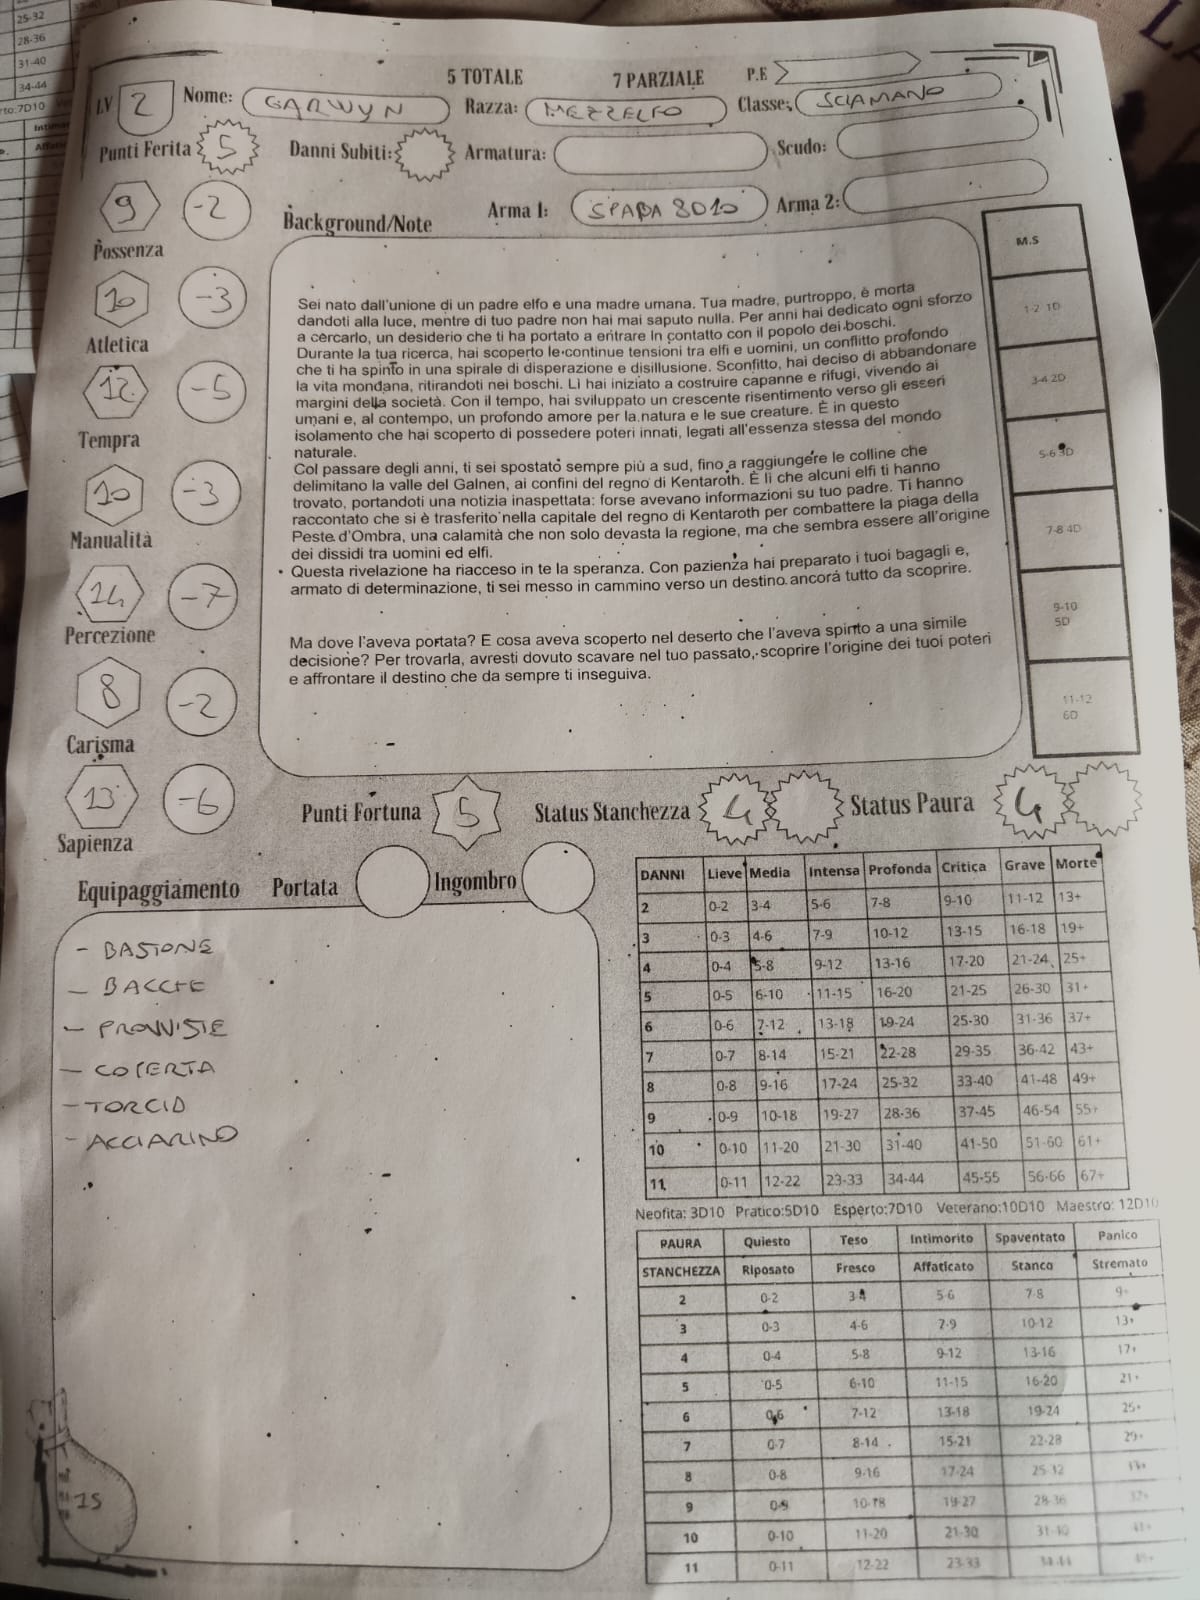 25-32
28-36
31-40
34-44
5 TOTALE
7 PARZIALE
P.E
LV 2
Nome: GARWYN
Razza: MEZZELFO
Classe: SCIAMANO
Punti Ferita 5
Danni Subiti:
Armatura:
Scudo:
Arma 1: SPADA 8D10
Arma 2:
9 -2
Possenza
10 -3
Atletica
12 -5
Tempra
10 -3
Manualità
14 -7
Percezione
8 -2
Carisma
13 -6
Sapienza
Background/Note
Sei nato dall'unione di un padre elfo e una madre umana. Tua madre, purtroppo, è morta
dandoti alla luce, mentre di tuo padre non hai mai saputo nulla. Per anni hai dedicato ogni sforzo
a cercarlo, un desiderio che ti ha portato a entrare in contatto con il popolo dei boschi.
Durante la tua ricerca, hai scoperto le continue tensioni tra elfi e uomini, un conflitto profondo
che ti ha spinto in una spirale di disperazione e disillusione. Sconfitto, hai deciso di abbandonare
la vita mondana, ritirandoti nei boschi. Lì hai iniziato a costruire capanne e rifugi, vivendo ai
margini della società. Con il tempo, hai sviluppato un crescente risentimento verso gli esseri
umani e, al contempo, un profondo amore per la natura e le sue creature. È in questo
isolamento che hai scoperto di possedere poteri innati, legati all'essenza stessa del mondo
naturale.
Col passare degli anni, ti sei spostato sempre più a sud, fino a raggiungere le colline che
delimitano la valle del Galnen, ai confini del regno di Kentaroth. È lì che alcuni elfi ti hanno
trovato, portandoti una notizia inaspettata: forse avevano informazioni su tuo padre. Ti hanno
raccontato che si è trasferito nella capitale del regno di Kentaroth per combattere la piaga della
Peste d'Ombra, una calamità che non solo devasta la regione, ma che sembra essere all'origine
dei dissidi tra uomini ed elfi.
Questa rivelazione ha riacceso in te la speranza. Con pazienza hai preparato i tuoi bagagli e,
armato di determinazione, ti sei messo in cammino verso un destino ancora tutto da scoprire.
Ma dove l'aveva portata? E cosa aveva scoperto nel deserto che l'aveva spinto a una simile
decisione? Per trovarla, avresti dovuto scavare nel tuo passato, scoprire l'origine dei tuoi poteri
e affrontare il destino che da sempre ti inseguiva.
M.S
1-2 1D
3-4 2D
5-6 3D
7-8 4D
9-10
5D
11-12
6D
Punti Fortuna 5
Status Stanchezza 4
Status Paura 4
Equipaggiamento
Portata
Ingombro
- BASTONE
- BACCHE
- PROVVISTE
- COPERTA
- TORCIA
- ACCIARINO
15
DANNI Lieve Media Intensa Profonda Critica Grave Morte
2 0-2 3-4 5-6 7-8 9-10 11-12 13+
3 0-3 4-6 7-9 10-12 13-15 16-18 19+
4 0-4 5-8 9-12 13-16 17-20 21-24 25+
5 0-5 6-10 11-15 16-20 21-25 26-30 31+
6 0-6 7-12 13-18 19-24 25-30 31-36 37+
7 0-7 8-14 15-21 22-28 29-35 36-42 43+
8 0-8 9-16 17-24 25-32 33-40 41-48 49+
9 0-9 10-18 19-27 28-36 37-45 46-54 55+
10 0-10 11-20 21-30 31-40 41-50 51-60 61+
11 0-11 12-22 23-33 34-44 45-55 56-66 67+
Neofita: 3D10 Pratico:5D10 Esperto:7D10 Veterano:10D10 Maestro: 12D10
PAURA Quiesto Teso Intimorito Spaventato Panico
STANCHEZZA Riposato Fresco Affaticato Stanco Stremato
2 0-2 3-4 5-6 7-8 9+
3 0-3 4-6 7-9 10-12 13+
4 0-4 5-8 9-12 13-16 17+
5 0-5 6-10 11-15 16-20 21+
6 0-6 7-12 13-18 19-24 25+
7 0-7 8-14 15-21 22-28 29+
8 0-8 9-16 17-24 25-32
9 0-9 10-18 19-27 28-36
10 0-10 11-20 21-30 31-40
11 0-11 12-22 23-33 34-44